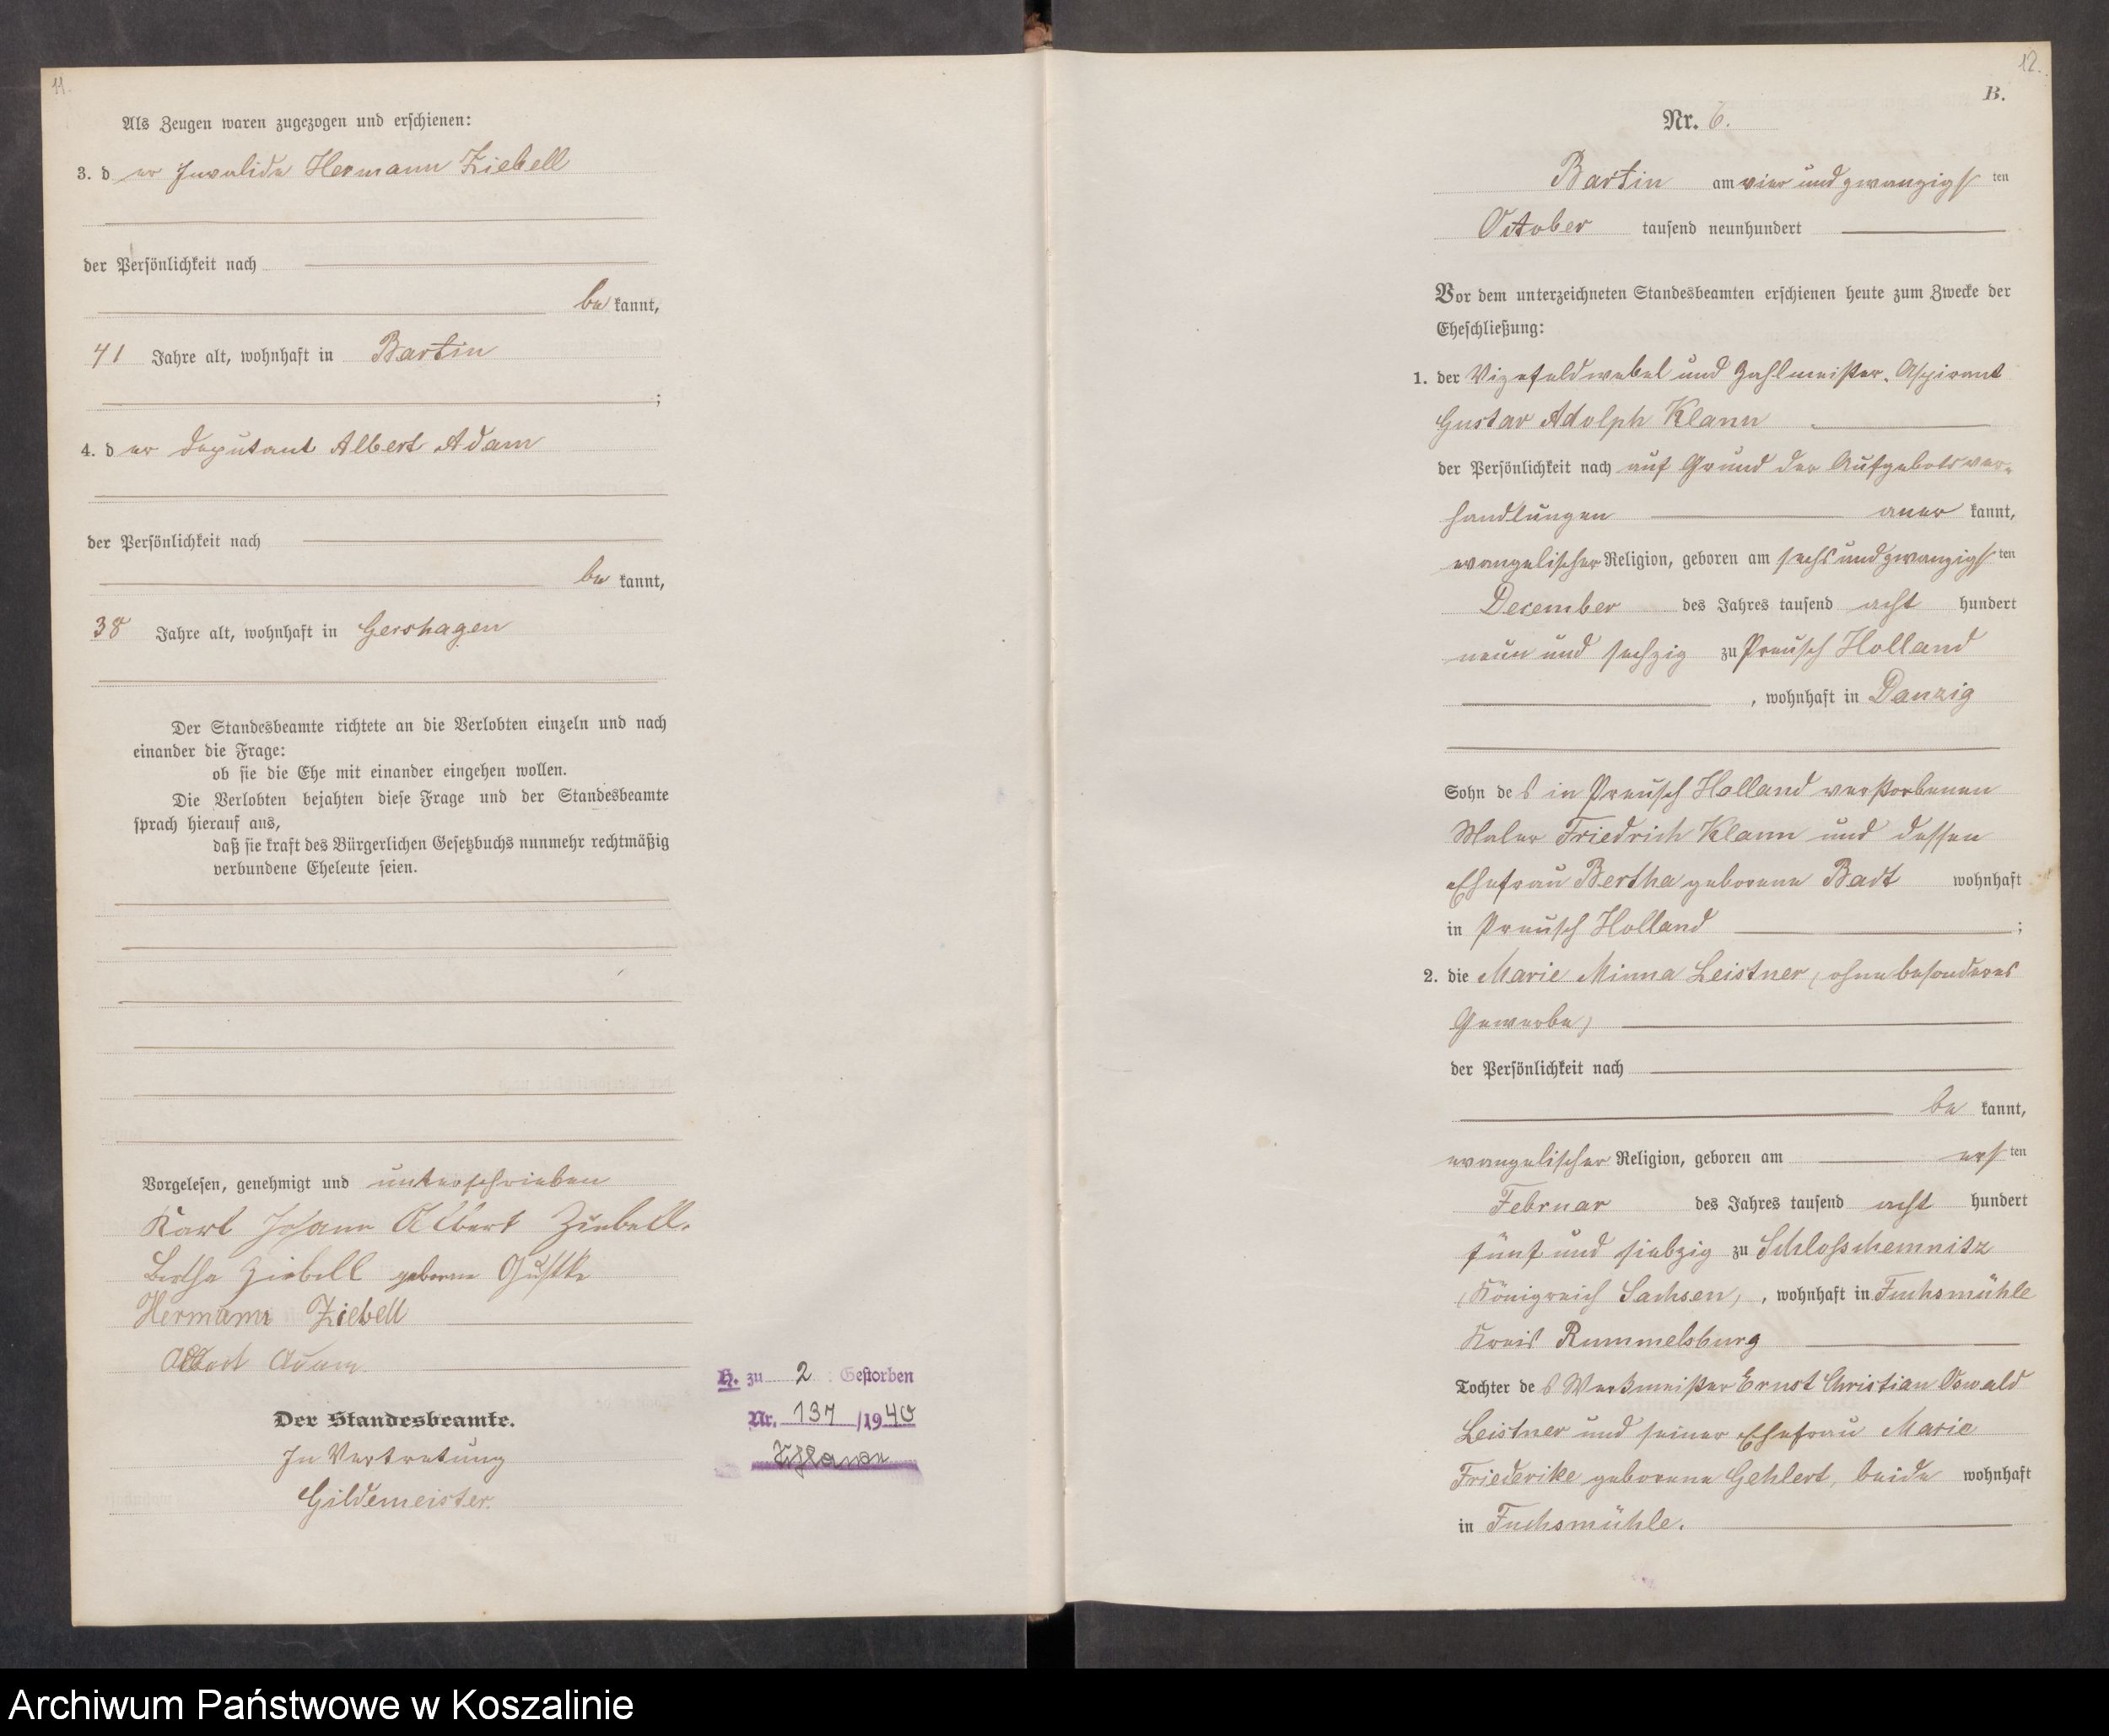 11.
Als Zeugen waren zugezogen und erschienen:
3. der Invalide Hermann Ziebell
der Persönlichkeit nach
be kannt,
41 Jahre alt, wohnhaft in Bartin
;
4. der Deputant Albert Adam
der Persönlichkeit nach
be kannt,
38 Jahre alt, wohnhaft in Gershagen
Der Standesbeamte richtete an die Verlobten einzeln und nach
einander die Frage:
ob sie die Ehe mit einander eingehen wollen.
Die Verlobten bejahten diese Frage und der Standesbeamte
sprach hierauf aus,
daß sie kraft des Bürgerlichen Gesetzbuchs nunmehr rechtmäßig
verbundene Eheleute seien.
Vorgelesen, genehmigt und unterschrieben
Karl Johann Albert Ziebell.
Bertha Ziebell geborene Gustke
Hermann Ziebell
Albert Adam.
Der Standesbeamte.
In Vertretung
Gildemeister.
H. zu 2 : Gestorben
Nr. 137 /1940
12.
B.
Nr. 6.
Bartin am vier und zwanzigsten
October tausend neunhundert
Vor dem unterzeichneten Standesbeamten erschienen heute zum Zwecke der
Eheschließung:
1. der Vizefeldwebel und Zahlmeister-Aspirant
Gustav Adolph Klann
der Persönlichkeit nach auf Grund der Aufgebotsver-
handlungen aner kannt,
evangelischer Religion, geboren am sechs und zwanzigsten
December des Jahres tausend acht hundert
neun und sechzig zu Preusch Holland
, wohnhaft in Danzig
Sohn des in Preusch Holland verstorbenen
Maler Friedrich Klann und dessen
Ehefrau Bertha geborene Badt wohnhaft
in Preusch Holland ;
2. die Marie Minna Leistner, (ohne besonderes
Gewerbe)
der Persönlichkeit nach
be kannt,
evangelischer Religion, geboren am ersten
Februar des Jahres tausend acht hundert
fünf und siebzig zu Schlosschemnitz
(Königreich Sachsen) , wohnhaft in Fuchsmühle
Kreis Rummelsburg
Tochter des Werkmeister Ernst Christian Oswald
Leistner und seiner Ehefrau Marie
Friederike geborene Gehlert, beide wohnhaft
in Fuchsmühle.
Archiwum Państwowe w Koszalinie